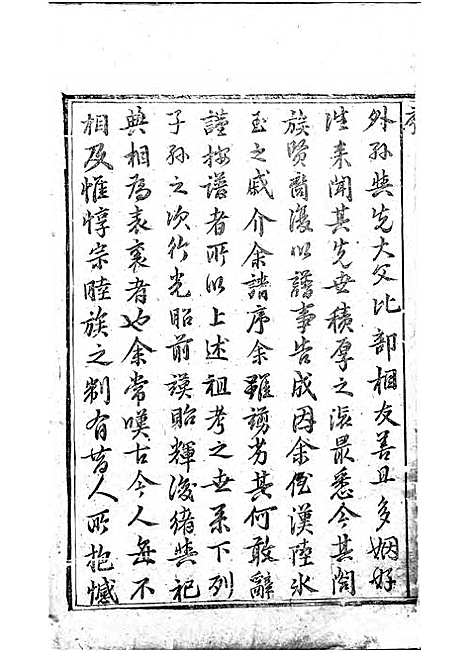 序
外孙與先大父比部相友善且多姻好
往来聞其先世積厚之深最悉今其閤
族賢裔復以譜事告成因余侄漢陸水
玉之戚介余譜序余雖謭劣其何敢辭
謹按譜者所以上述祖考之世系下列
子孫之次行光昭前謨貽輝後緒與祀
典相為表裏者也余常嘆古今人每不
相及惟惇宗睦族之制有昔人所抱憾